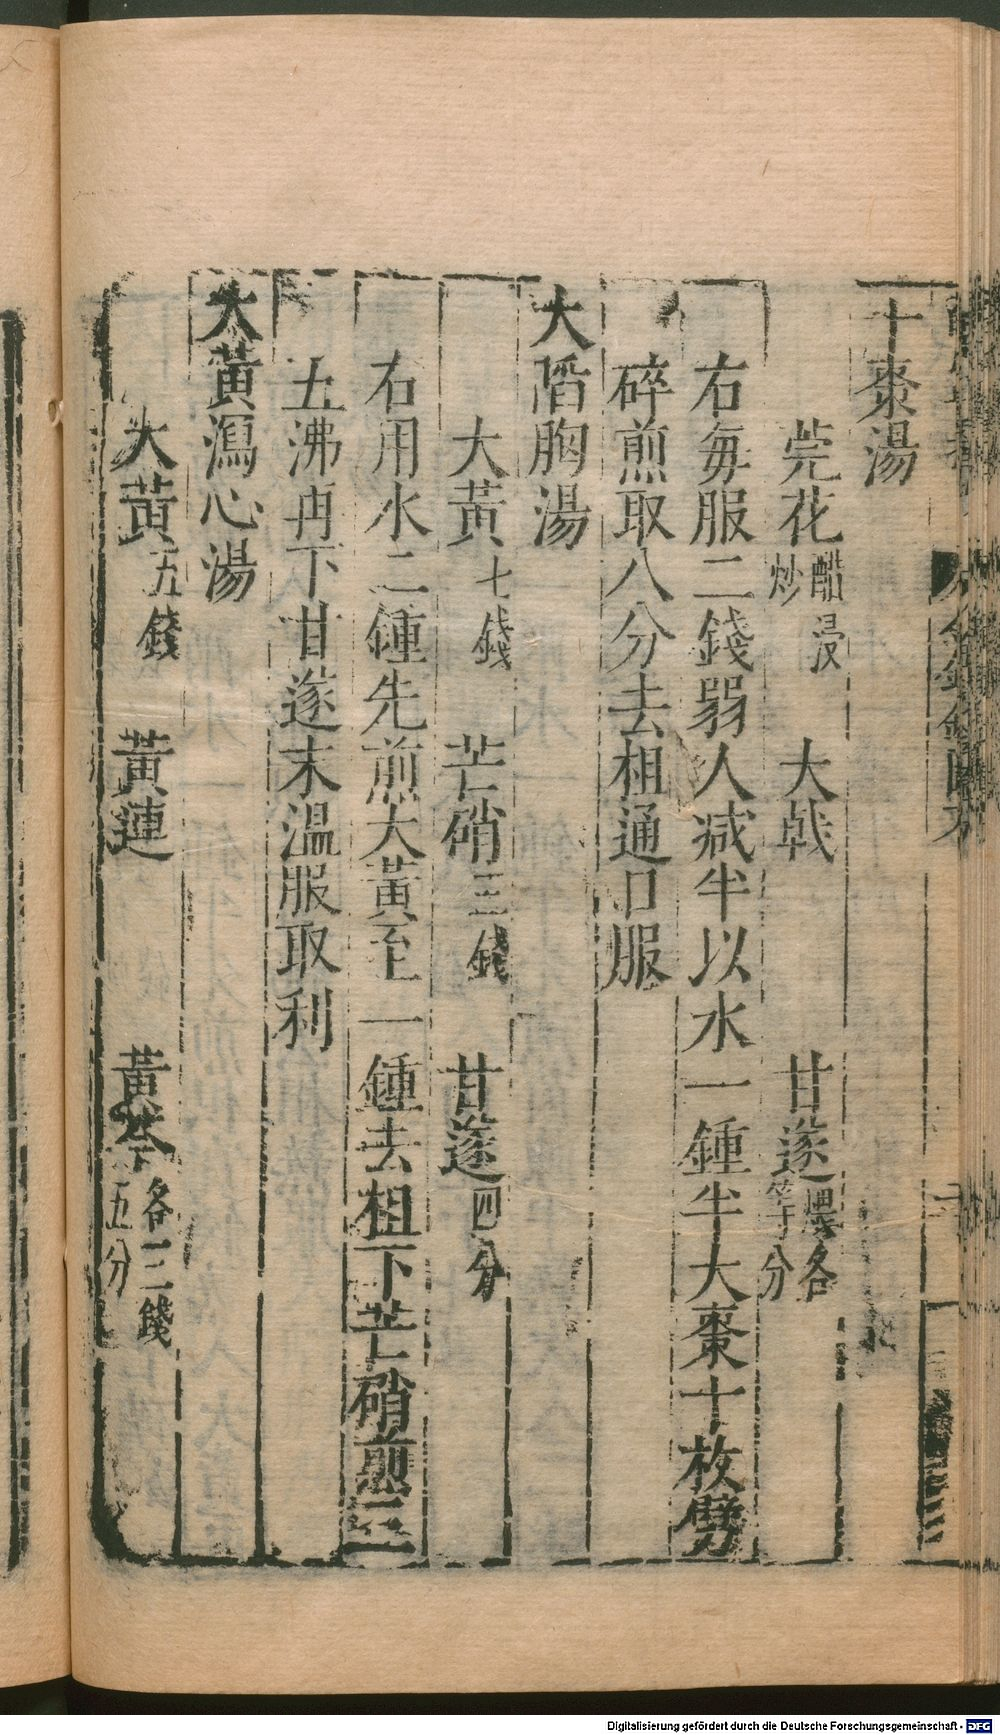 十棗湯
芫花醋浸炒 大戟 甘遂煨各等分
右每服二錢弱人減半以水一鍾半大棗十枚劈
碎煎取八分去柤通口服
大陷胸湯
大黃七錢 芒硝三錢 甘遂四分
右用水二鍾先煎大黃至一鍾去柤下芒硝煎三
五沸再下甘遂末溫服取利
大黃瀉心湯
大黃五錢 黃連 黃芩各三錢五分
Digitalisierung gefördert durch die Deutsche Forschungsgemeinschaft - DFG